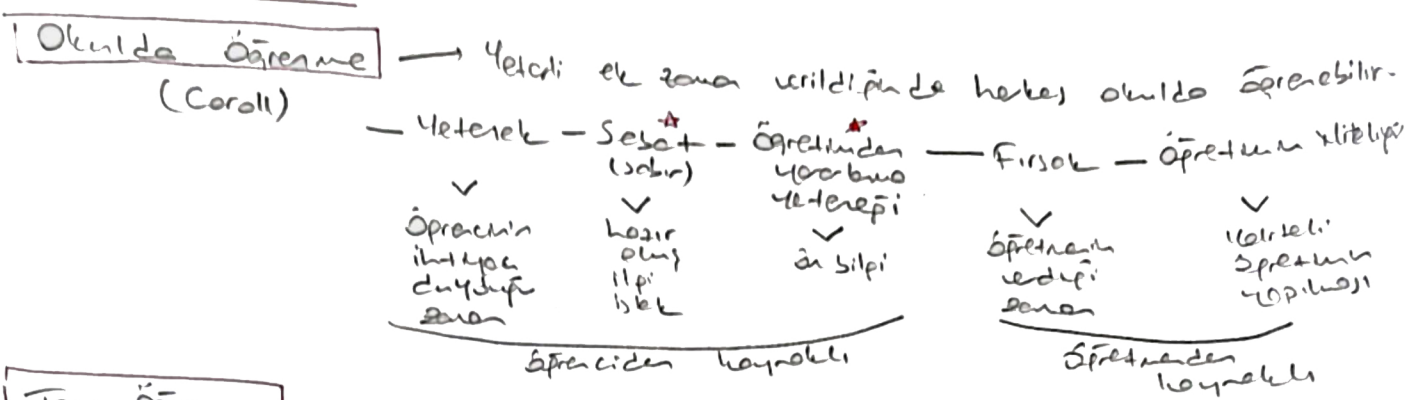 Okulda Öğrenme → Yeterli ek zaman verildiğinde herkes okulda öğrenebilir.
(Coroll)
— Yetenek — Sebat — Öğretimden — Fırsat — Öğretimin niteliği
(sabır) yararlanma
yeteneği
Öğrencinin
ihtiyaç
duyduğu
zaman
hazır
oluş
ilgi
istek
ön bilgi
öğretmenin
verdiği
zaman
kaliteli
öğretimin
yapılması
öğrenciden kaynaklı
öğretmenden
kaynaklı